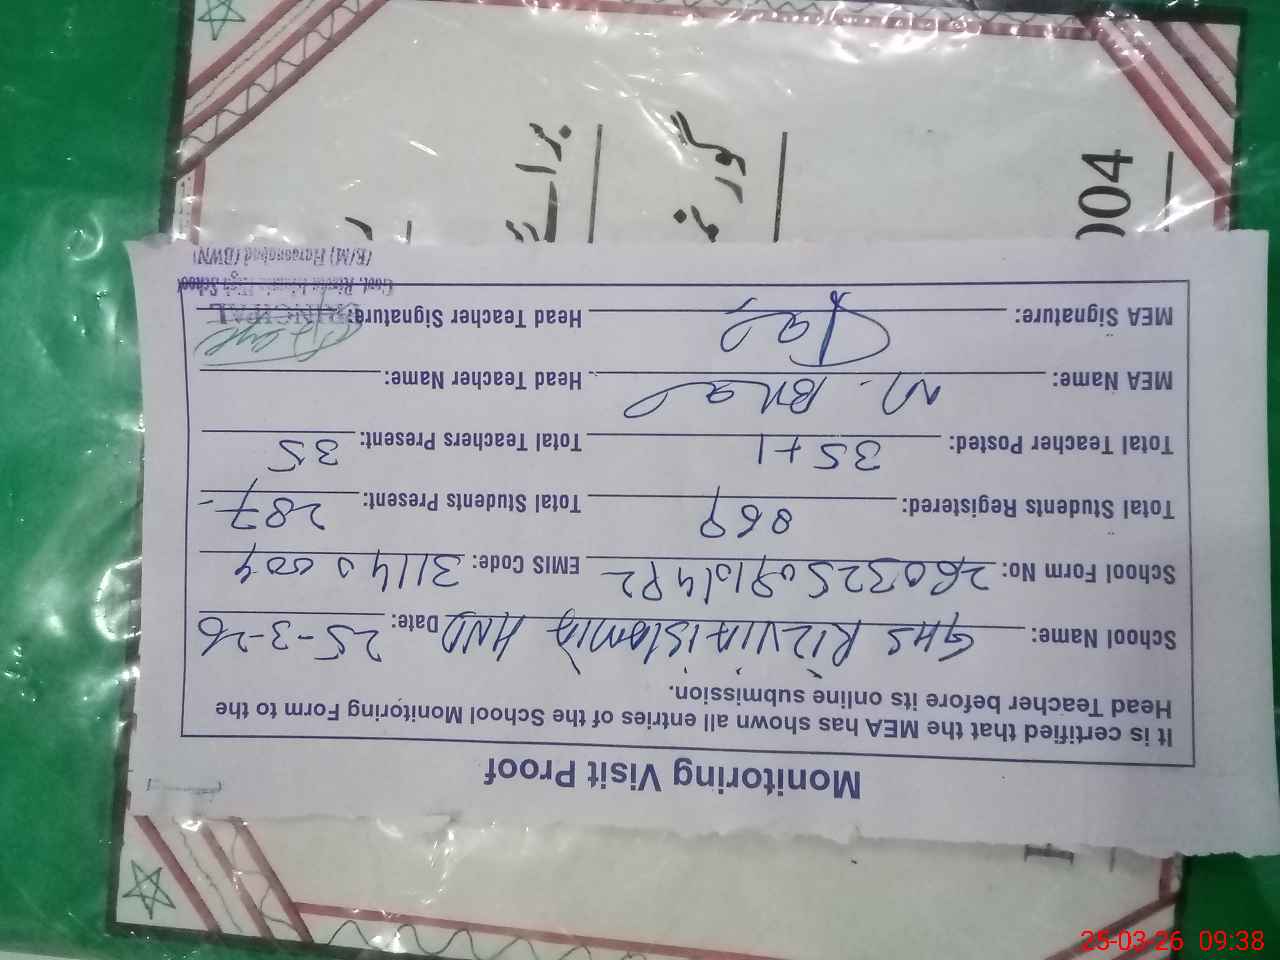 Monitoring Visit Proof
It is certified that the MEA has shown all entries of the School Monitoring Form to the
Head Teacher before its online submission.
School Name: GHS RIZVIA ISLAMIA HND Date: 25-3-26
School Form No: EMIS Code: 31140004
Total Students Registered: 869 Total Students Present: 287
Total Teacher Posted: 35+1 Total Teachers Present: 35
MEA Name: Head Teacher Name:
MEA Signature: Head Teacher Signature:
PRINCIPAL
Govt. Rizvia Islamia High School
(E/M) Haroonabad (BWN)
004
برائے
گورنمنٹ
25-03-26 09:38